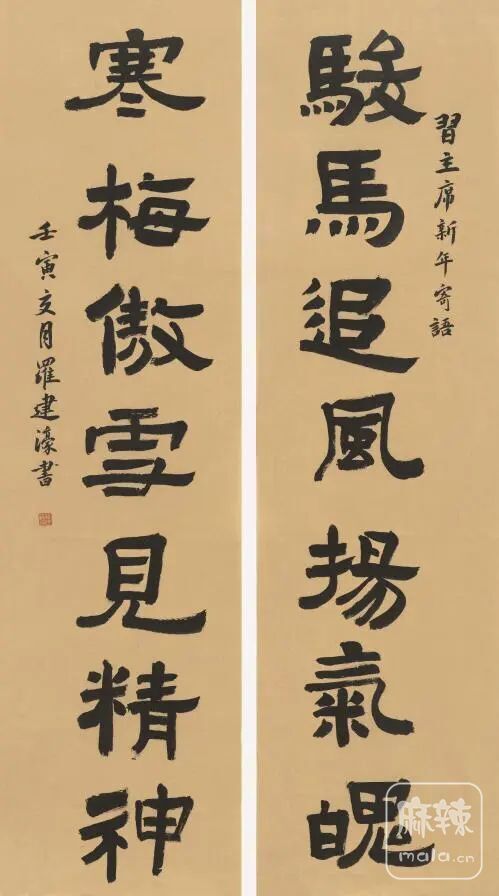 習主席新年寄語
駿馬追風揚氣魄
寒梅傲雪見精神
壬寅亥月羅建濠書
麻辣
mala.cn